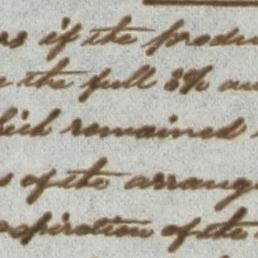 rs if the produ
the full 3% au
hich remained
s of the arrang
expiration of the